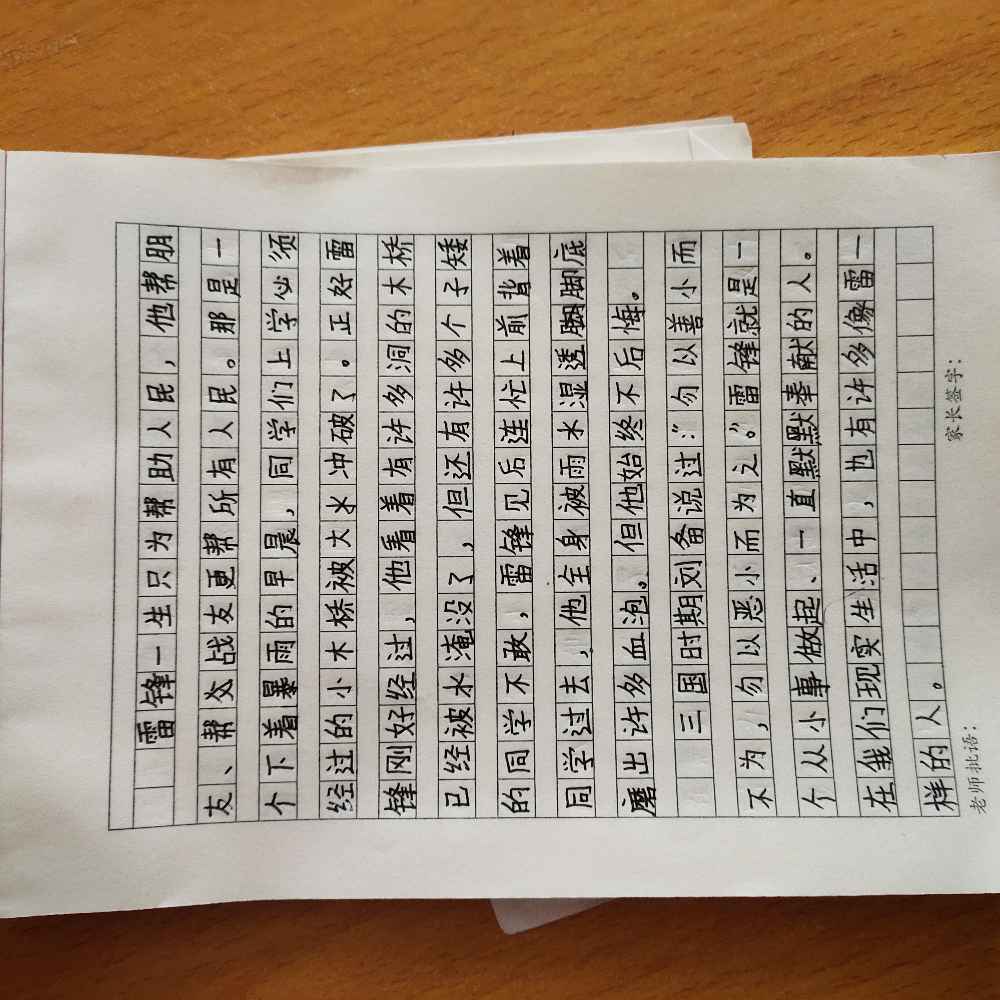 雷锋一生只为帮助人民，他帮朋
友、帮战友更帮所有人民。那是一
个下着暴雨的早晨，同学们上学必须
经过的小木桥被大水冲破了。正好雷
锋刚好经过，他看着有许多洞的木桥
已经被水淹没了，但还有许多个子矮
的同学不敢，雷锋见后连忙上前背着
同学过去，他全身被雨水湿透脚底
磨出许多血泡。但他始终不后悔。
三国时期刘备说过：“勿以善小而
不为，勿以恶小而为之。”雷锋就是一
个从小事做起、一直默默奉献的人。
在我们现实生活中，也有许多像雷一
样的人。
老师批语：
家长签字：